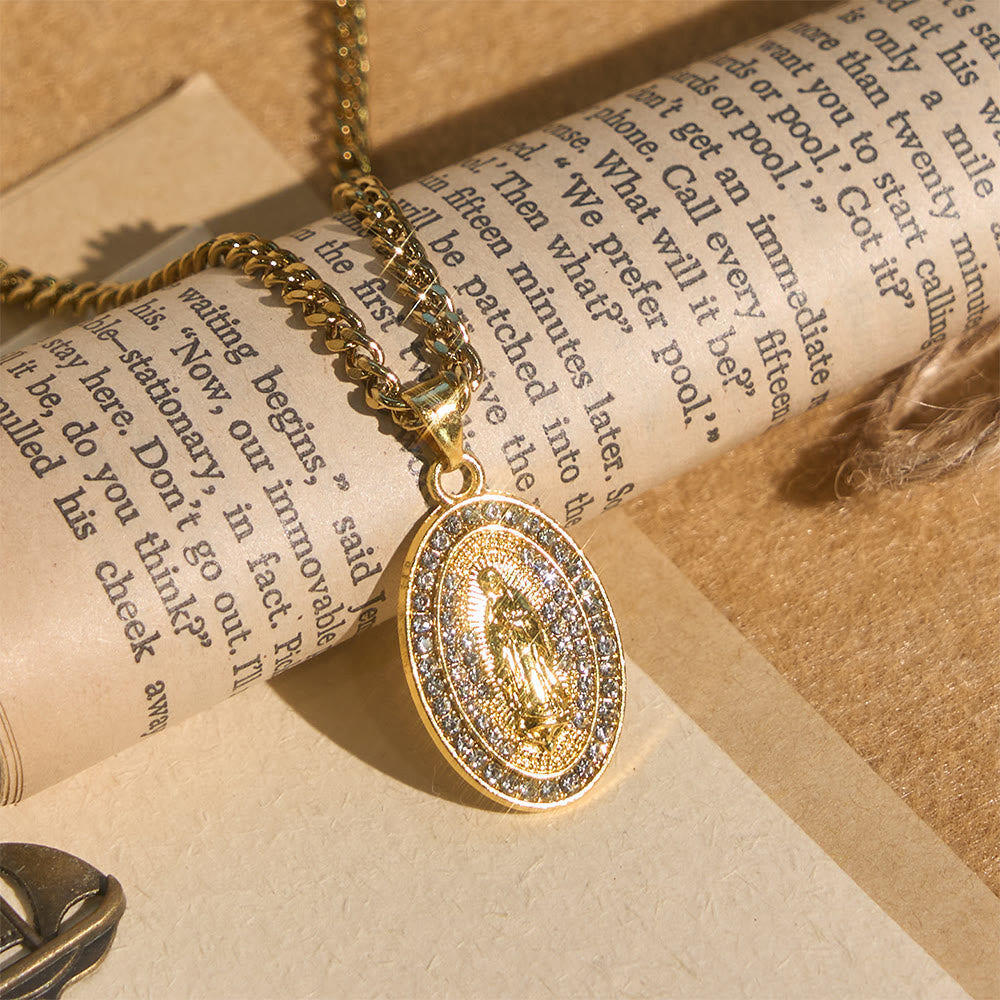 's said
at his
is only a mile
more than twenty minute
want you to start calling
or pool.' Got it?”
or pool.”
don't get an immediate
phone. Call every fifteen
What will it be?”
“‘We prefer pool.’”
Then what?”
in fifteen minutes later.
will be patched into the
the
the first
waiting begins,” said
his. “Now, our immovable
stationary, in fact.
stay here. Don't go out. I'll
it be, do you think?”
pulled his cheek away